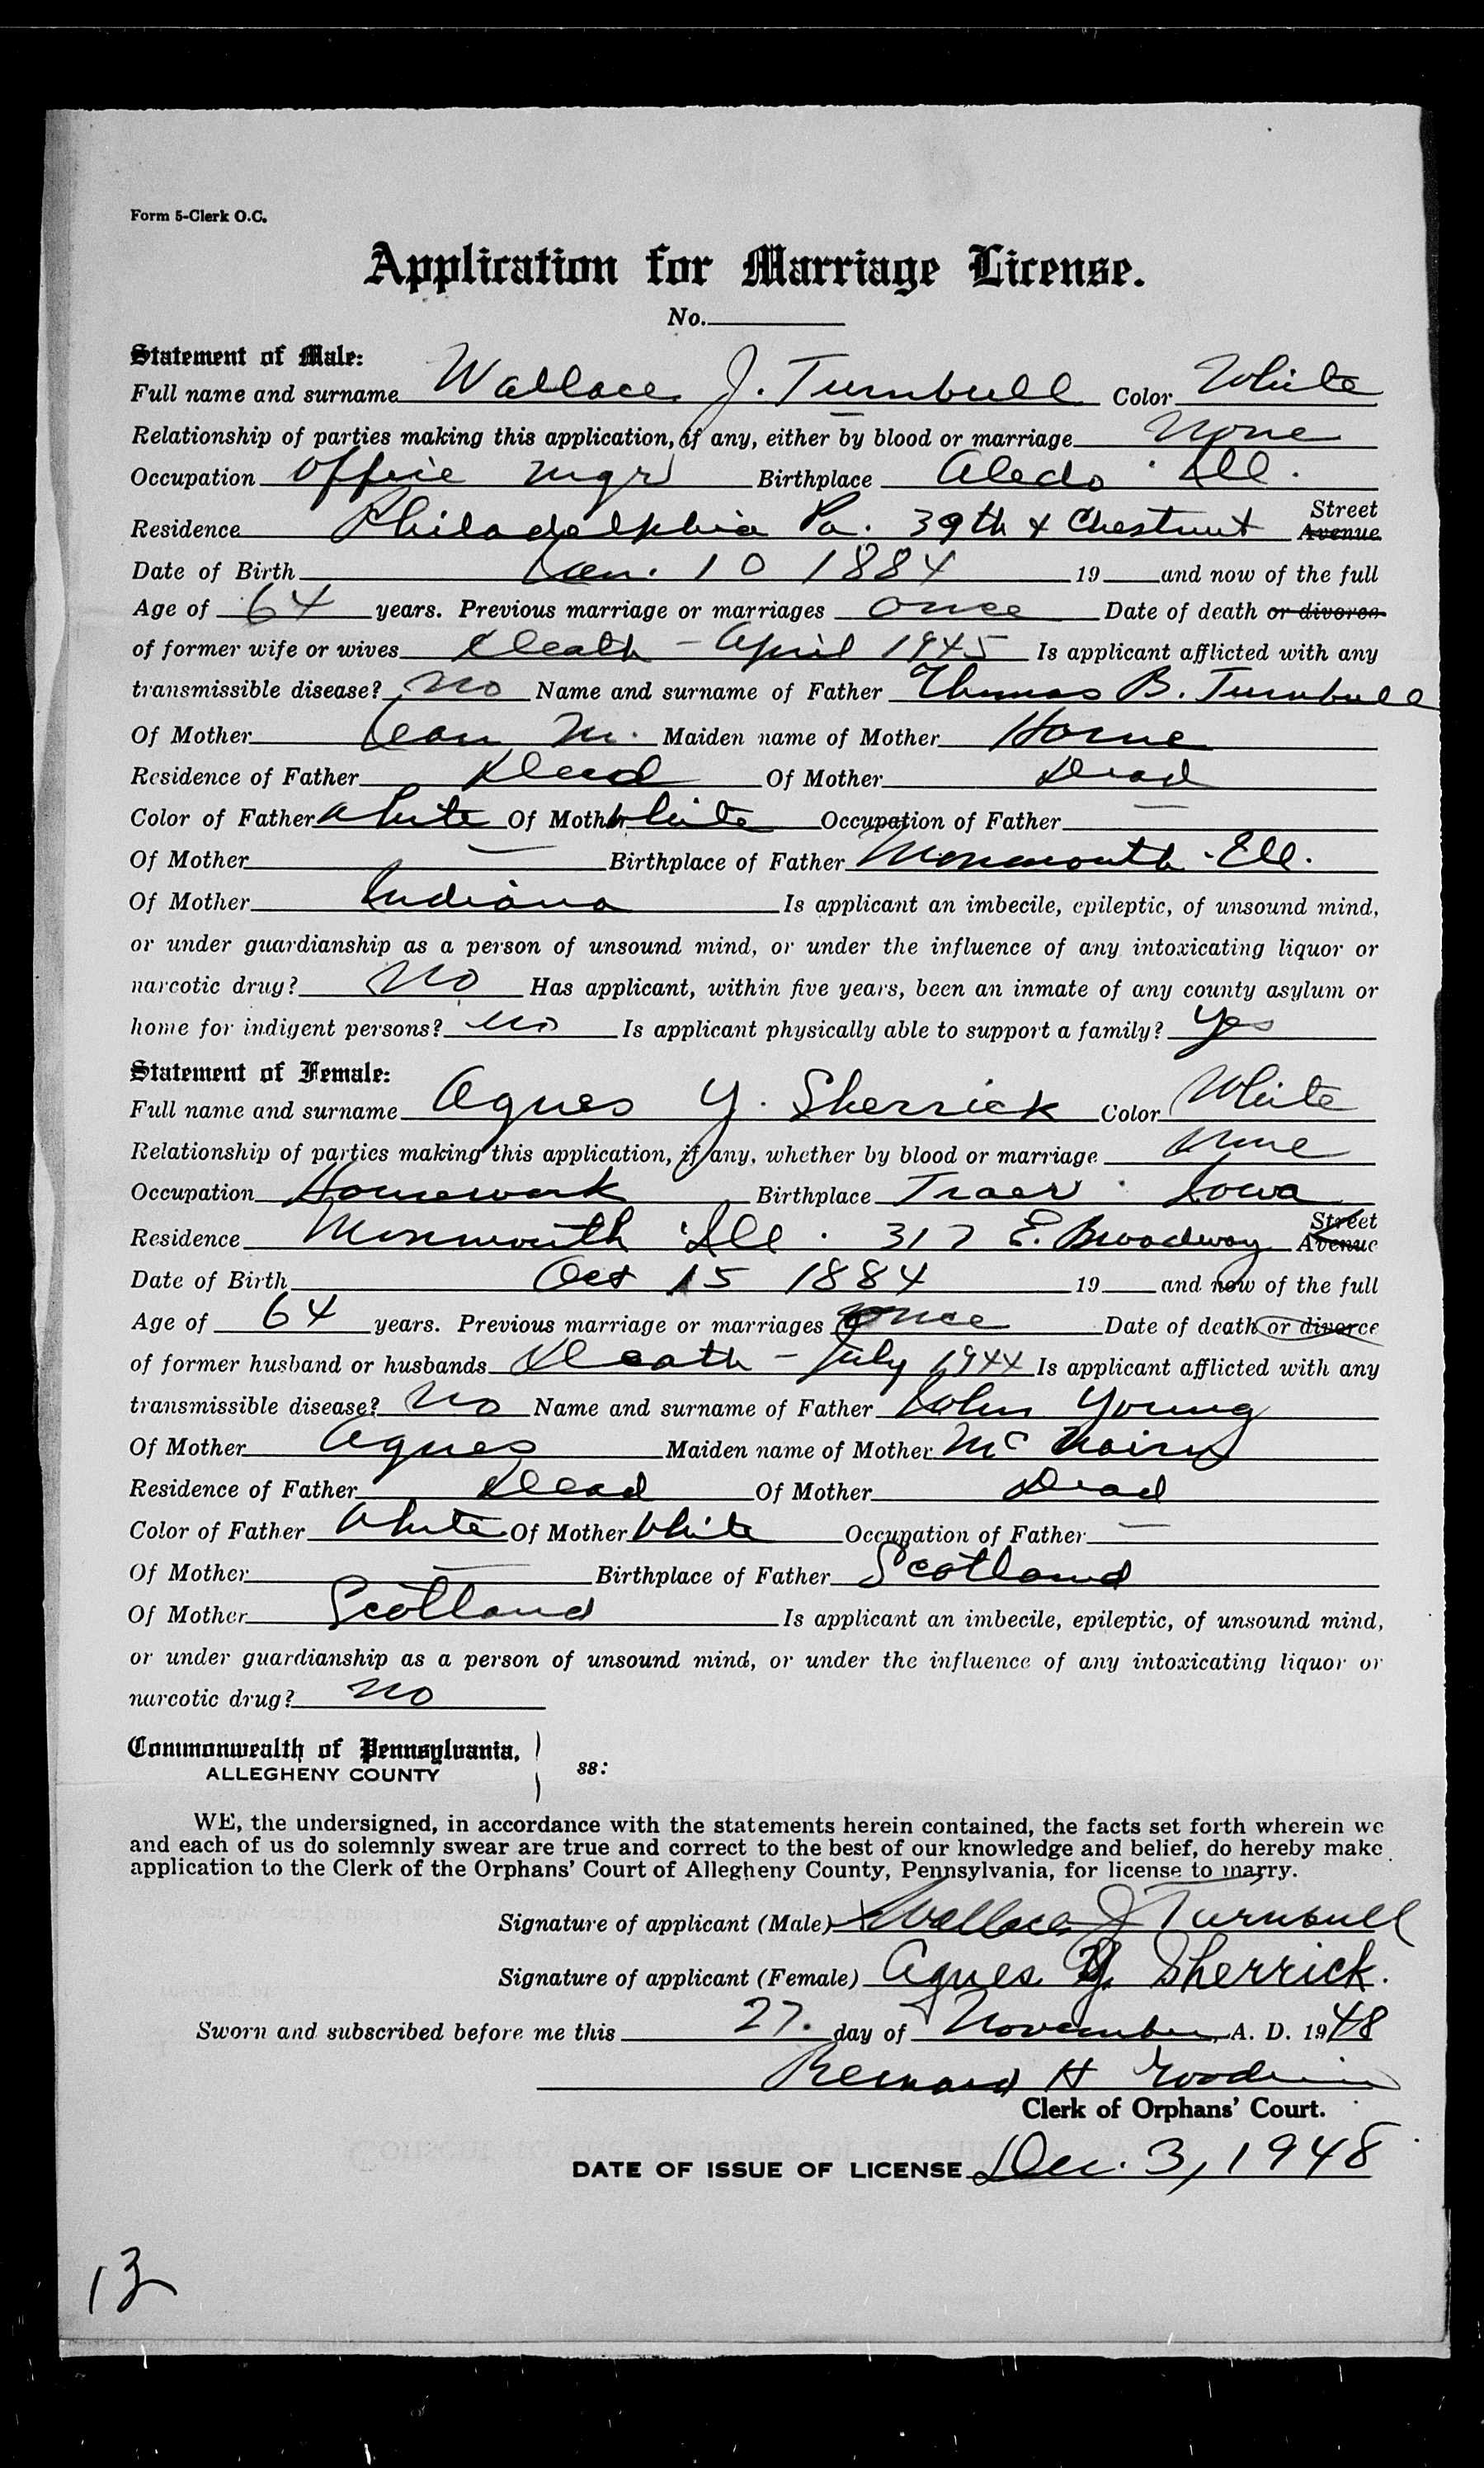 Form 5-Clerk O.C.
Application for Marriage License.
No.
Statement of Male:
Full name and surname Wallace J. Turnbull Color White
Relationship of parties making this application, if any, either by blood or marriage None
Occupation Office Mgr Birthplace Aledo Ill.
Street
Residence Philadelphia Pa. 39th & Chestnut Avenue
Date of Birth Jan. 10 1884 19 and now of the full
Age of 64 years. Previous marriage or marriages once Date of death or divorce
of former wife or wives Death - April 1945 Is applicant afflicted with any
transmissible disease? No Name and surname of Father Thomas B. Turnbull
Of Mother Jean M. Maiden name of Mother Horne
Residence of Father Dead Of Mother Dead
Color of Father White Of Mother White Occupation of Father —
Of Mother — Birthplace of Father Monmouth - Ill.
Of Mother Indiana Is applicant an imbecile, epileptic, of unsound mind,
or under guardianship as a person of unsound mind, or under the influence of any intoxicating liquor or
narcotic drug? No Has applicant, within five years, been an inmate of any county asylum or
home for indigent persons? No Is applicant physically able to support a family? Yes
Statement of Female:
Full name and surname Agnes Y. Sherrick Color White
Relationship of parties making this application, if any, whether by blood or marriage None
Occupation Housework Birthplace Traer Iowa
Street
Residence Monmouth Ill. 317 E. Broadway Avenue
Date of Birth Oct 15 1884 19 and now of the full
Age of 64 years. Previous marriage or marriages once Date of death or divorce
of former husband or husbands Death - July 1944 Is applicant afflicted with any
transmissible disease? No Name and surname of Father John Young
Of Mother Agnes Maiden name of Mother McNairn
Residence of Father Dead Of Mother Dead
Color of Father White Of Mother White Occupation of Father —
Of Mother — Birthplace of Father Scotland
Of Mother Scotland Is applicant an imbecile, epileptic, of unsound mind,
or under guardianship as a person of unsound mind, or under the influence of any intoxicating liquor or
narcotic drug? No
Commonwealth of Pennsylvania,
ALLEGHENY COUNTY ss:
WE, the undersigned, in accordance with the statements herein contained, the facts set forth wherein we
and each of us do solemnly swear are true and correct to the best of our knowledge and belief, do hereby make
application to the Clerk of the Orphans' Court of Allegheny County, Pennsylvania, for license to marry.
Signature of applicant (Male) X Wallace J Turnbull
Signature of applicant (Female) Agnes Y. Sherrick.
Sworn and subscribed before me this 27. day of November, A. D. 1948
Bernard H Goodwin
Clerk of Orphans' Court.
DATE OF ISSUE OF LICENSE Dec. 3, 1948